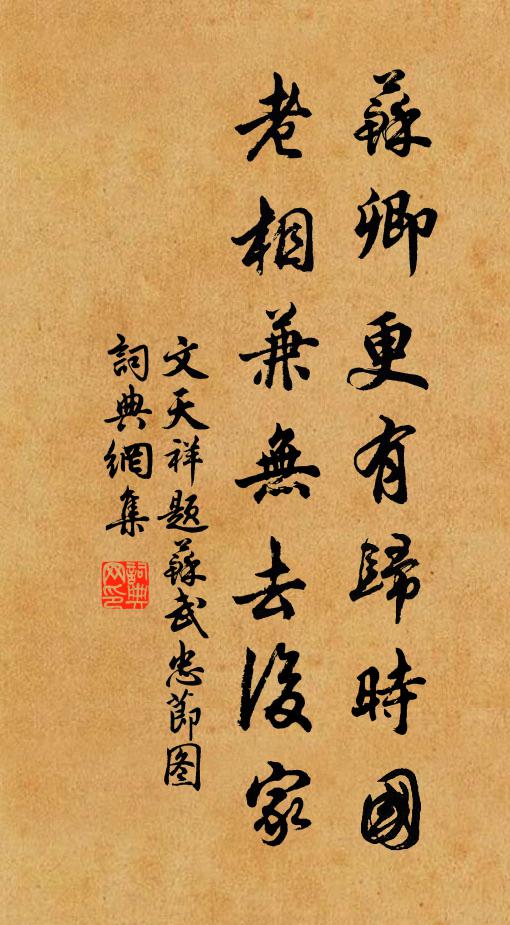 蘇卿更有歸時國
老相兼無去後家
文天祥題蘇武忠節图
詞典網集
詞典网印